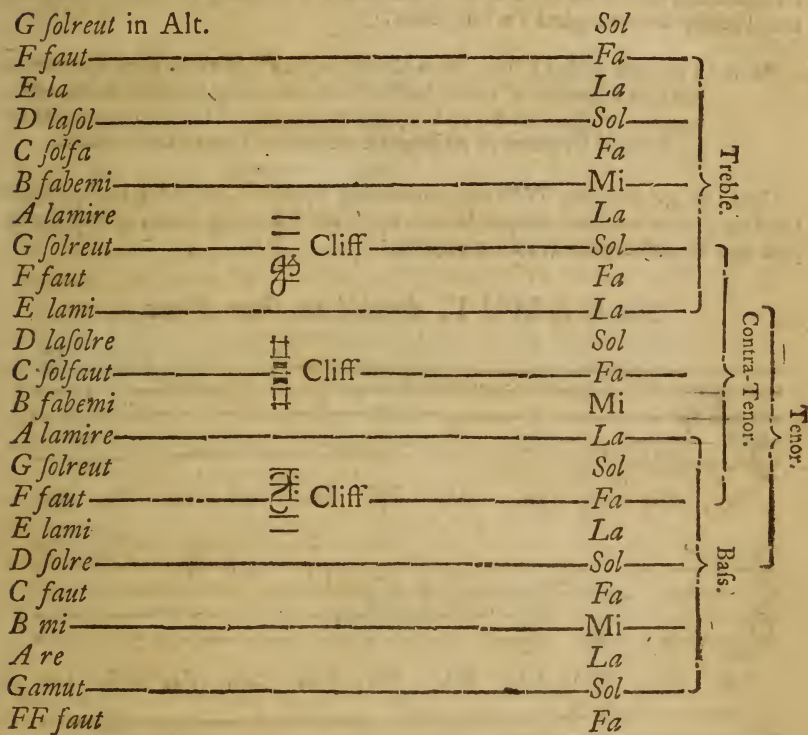 G ſolreut in Alt. Sol
F faut Fa
E la La
D laſol Sol
C ſolfa Fa
B fabemi Mi
A lamire La
G ſolreut Cliff Sol
F faut Fa
E lami La
D laſolre Sol
C ſolfaut Cliff Fa
B fabemi Mi
A lamire La
G ſolreut Sol
F faut Cliff Fa
E lami La
D ſolre Sol
C faut Fa
B mi Mi
A re La
Gamut Sol
FF faut Fa
Treble.
Contra-Tenor.
Tenor.
Baſs.